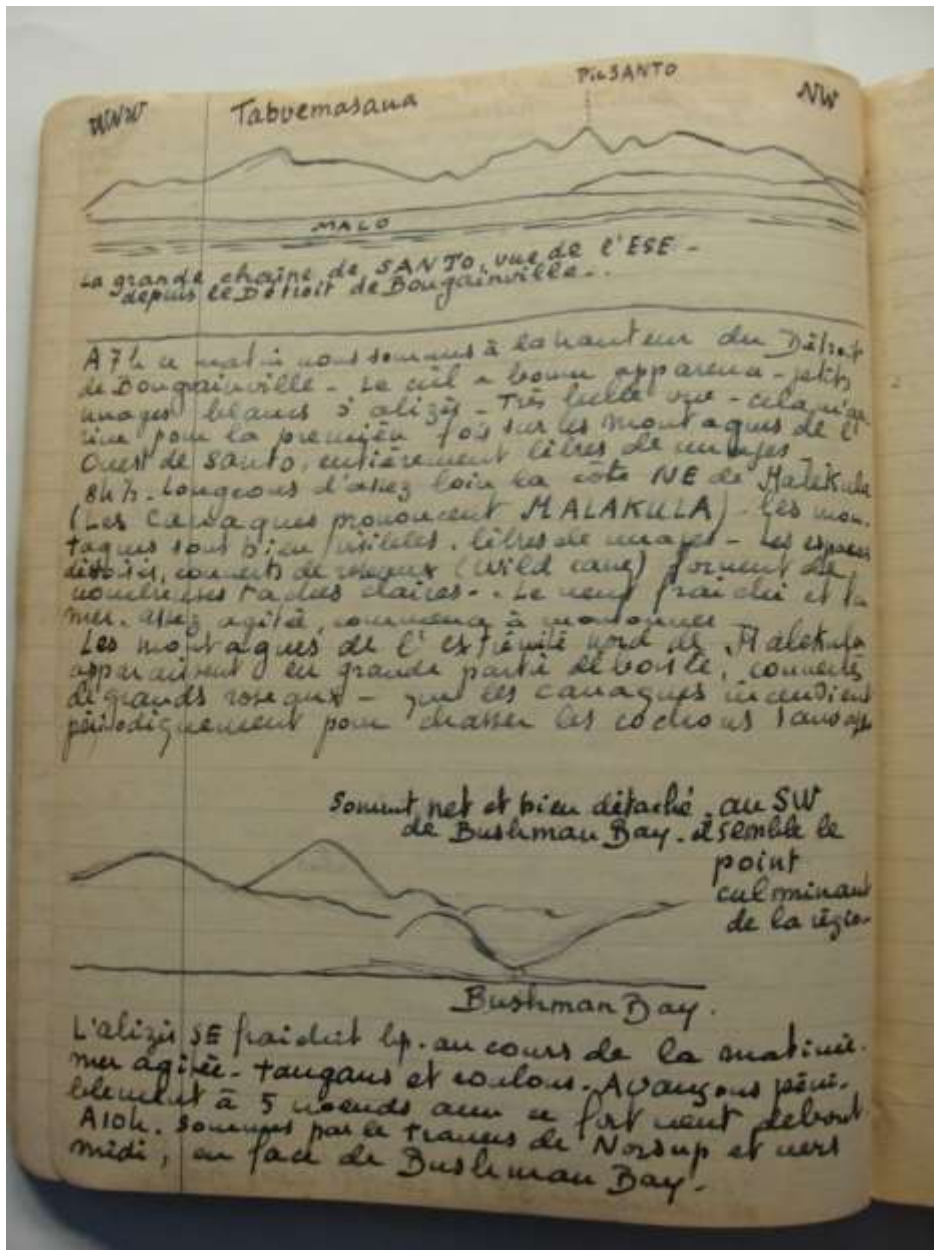 PIC SANTO
WNW Tabwemasana NW
MALO
La grande chaîne de SANTO, vue de l'ESE -
depuis le Détroit de Bougainville -.
A 7h ce matin nous sommes à la hauteur du Détroit
de Bougainville - Le ciel a bonne apparence - petits
nuages blancs d'alizés - Très belle vue - cela m'ar
rive pour la première fois sur les montagnes de l'
Ouest de Santo, entièrement libres de nuages -
8h½. Longeons d'assez loin la côte NE de Malekula
(Les Canaques prononcent MALAKULA) - les mon-
tagnes sont bien visibles, libres de nuages - Les espaces
déboisés, couverts de roseaux (Wild cane) forment de
nombreuses taches claires -. Le vent fraichi et la
mer, assez agitée, commence à moutonner -
Les montagnes de l'extrémité nord de Malekula
apparaissent en grande partie déboisée, couvertes
de grands roseaux - que les canaques incendient
périodiquement pour chasser les cochons sauvages
Sommet net et bien détaché, au SW
de Bushman Bay. Il semble le
point
culminant
de la région
Bushman Bay.
L'alizé SE fraichit bp. au cours de la matinée.
mer agitée - tangans et roulons. Avançons péni-
blement à 5 noeuds avec ce fort vent debout
A 10h. sommes par le travers de Norsup et vers
midi, en face de Bushman Bay.